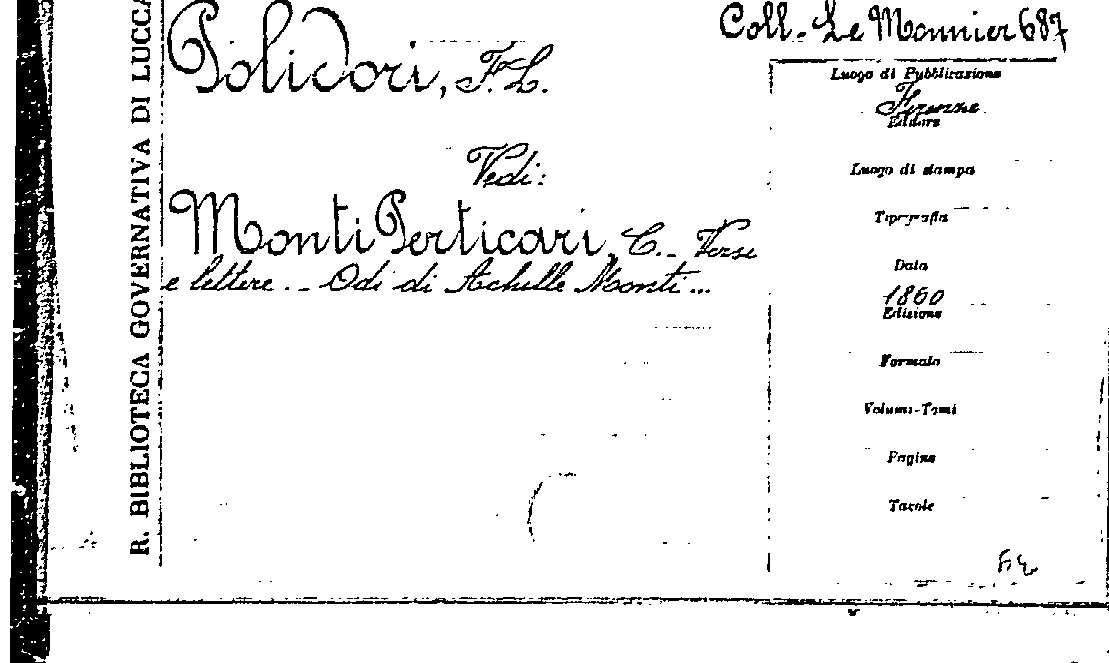 R. BIBLIOTECA GOVERNATIVA DI LUCCA
Coll. Le Monnier 687
Polidori, F. L.
Vedi:
Monti Perticari, C. - Versi
e lettere. - Odi di Achille Monti...
Luogo di Pubblicazione
Firenze
Editore
Luogo di stampa
Tipografia
Data
1860
Edizione
Formato
Volumi-Tomi
Pagine
Tavole